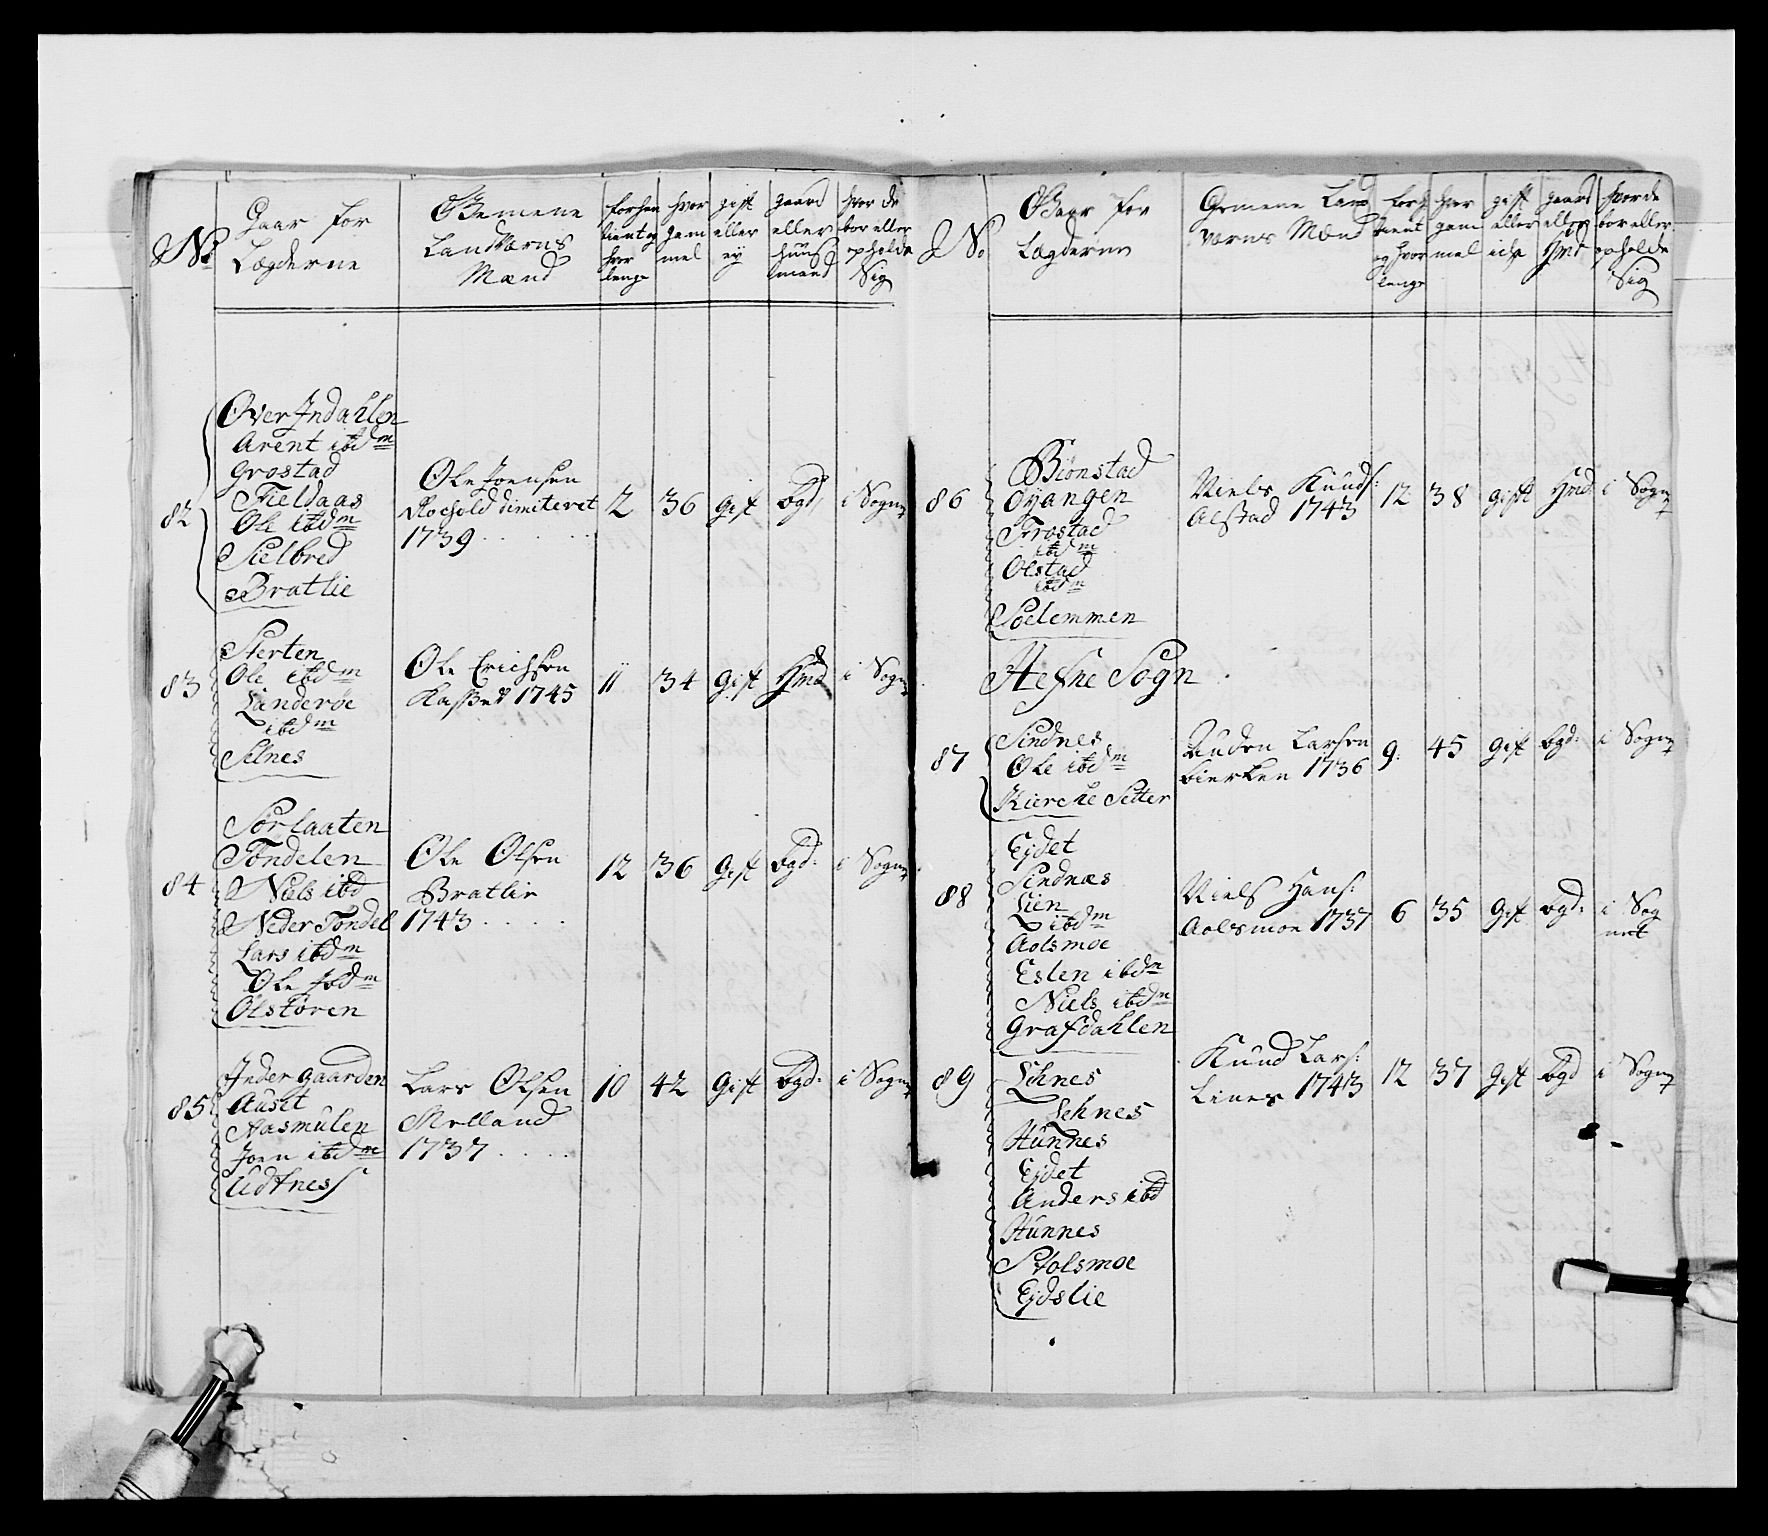 No
Gaar for
Lægderne
Gemene
Landværns
Mænd
forhen
tient og
hvor
lenge
hvor
gam
mel
gift
eller
ey
gaard
eller
huus
mand
hvor de
bor eller
opholde
Sig
82
Over Indahlen
Arent ibdm
Grostad
Fieldaas
Ole ibdm
Sielbred
Bratlie
Ole Joensen
Rochold dimiteret
1739
2
36
gift
bgd
i Sogn
83
Sterten
Ole ibdm
Sanderøe
ibdm
Selnes
Ole Erichsen
Kaßet 1745
11
34
gift
Hmd
i Sogn
84
Sorlaaten
Tøndelen
Niels ibd
Neder Tøndel
Lars ibdm
Ole ibdm
Olstøren
Ole Olsen
Bratlie
1743
12
36
gift
bgd:
i Sogn
85
Inder gaarden
Auset
Aasmulen
Joen ibdm
Udtness
Lars Olsen
Melland
1737
10
42
gift
bgd:
i Sogn
No
Gaar for
Lægderne
Gemene Land
værns Mænd
forh
tient
og hvor
lenge
hvor
gam
mel
gift
eller
icke
gaard
eller
Hmd
hvor de
bor eller
opholde
Sig
86
Biønstad
Oyangen
Frostad
ibdm
Olstad
ibdm
Soelemmen
Niels Knuds:
Alstad 1743
12
38
gift
Hmd
i Sogn
Hefne Sogn
87
Sindnes
Ole ibdm
Kierche Setter
Auden Larsen
bierken 1736
9:
45
gift
bgd:
i Sogn
88
Eydet
Sindnæs
Lien
ibdm
Aolsmoe
Eslen ibdm
Niels ibdm
Grafdahlen
Niels Hans:
Aolsmoe 1737
6
35
gift
bgd:
i Sog
net
89
Lehnes
Lehnes
Hunnes
Eydet
Anders ibd
Hunnes
Stolsmoe
Eydslie
Knud Lars:
Lines 1743
12
37
gift
bgd
i Sogn